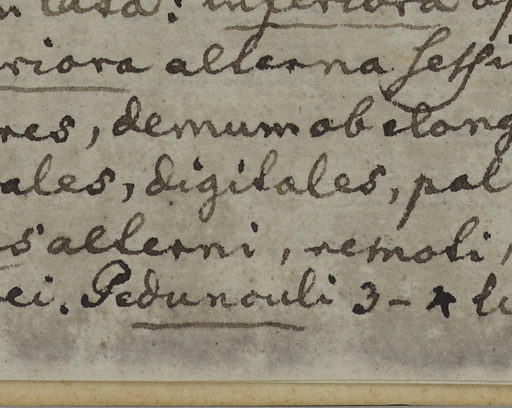 inferiora
riora alterna sessi
res, demum ob elong
ales, digitales, pal
s alterni, remoti,
ei. Pedunculi 3-4 li